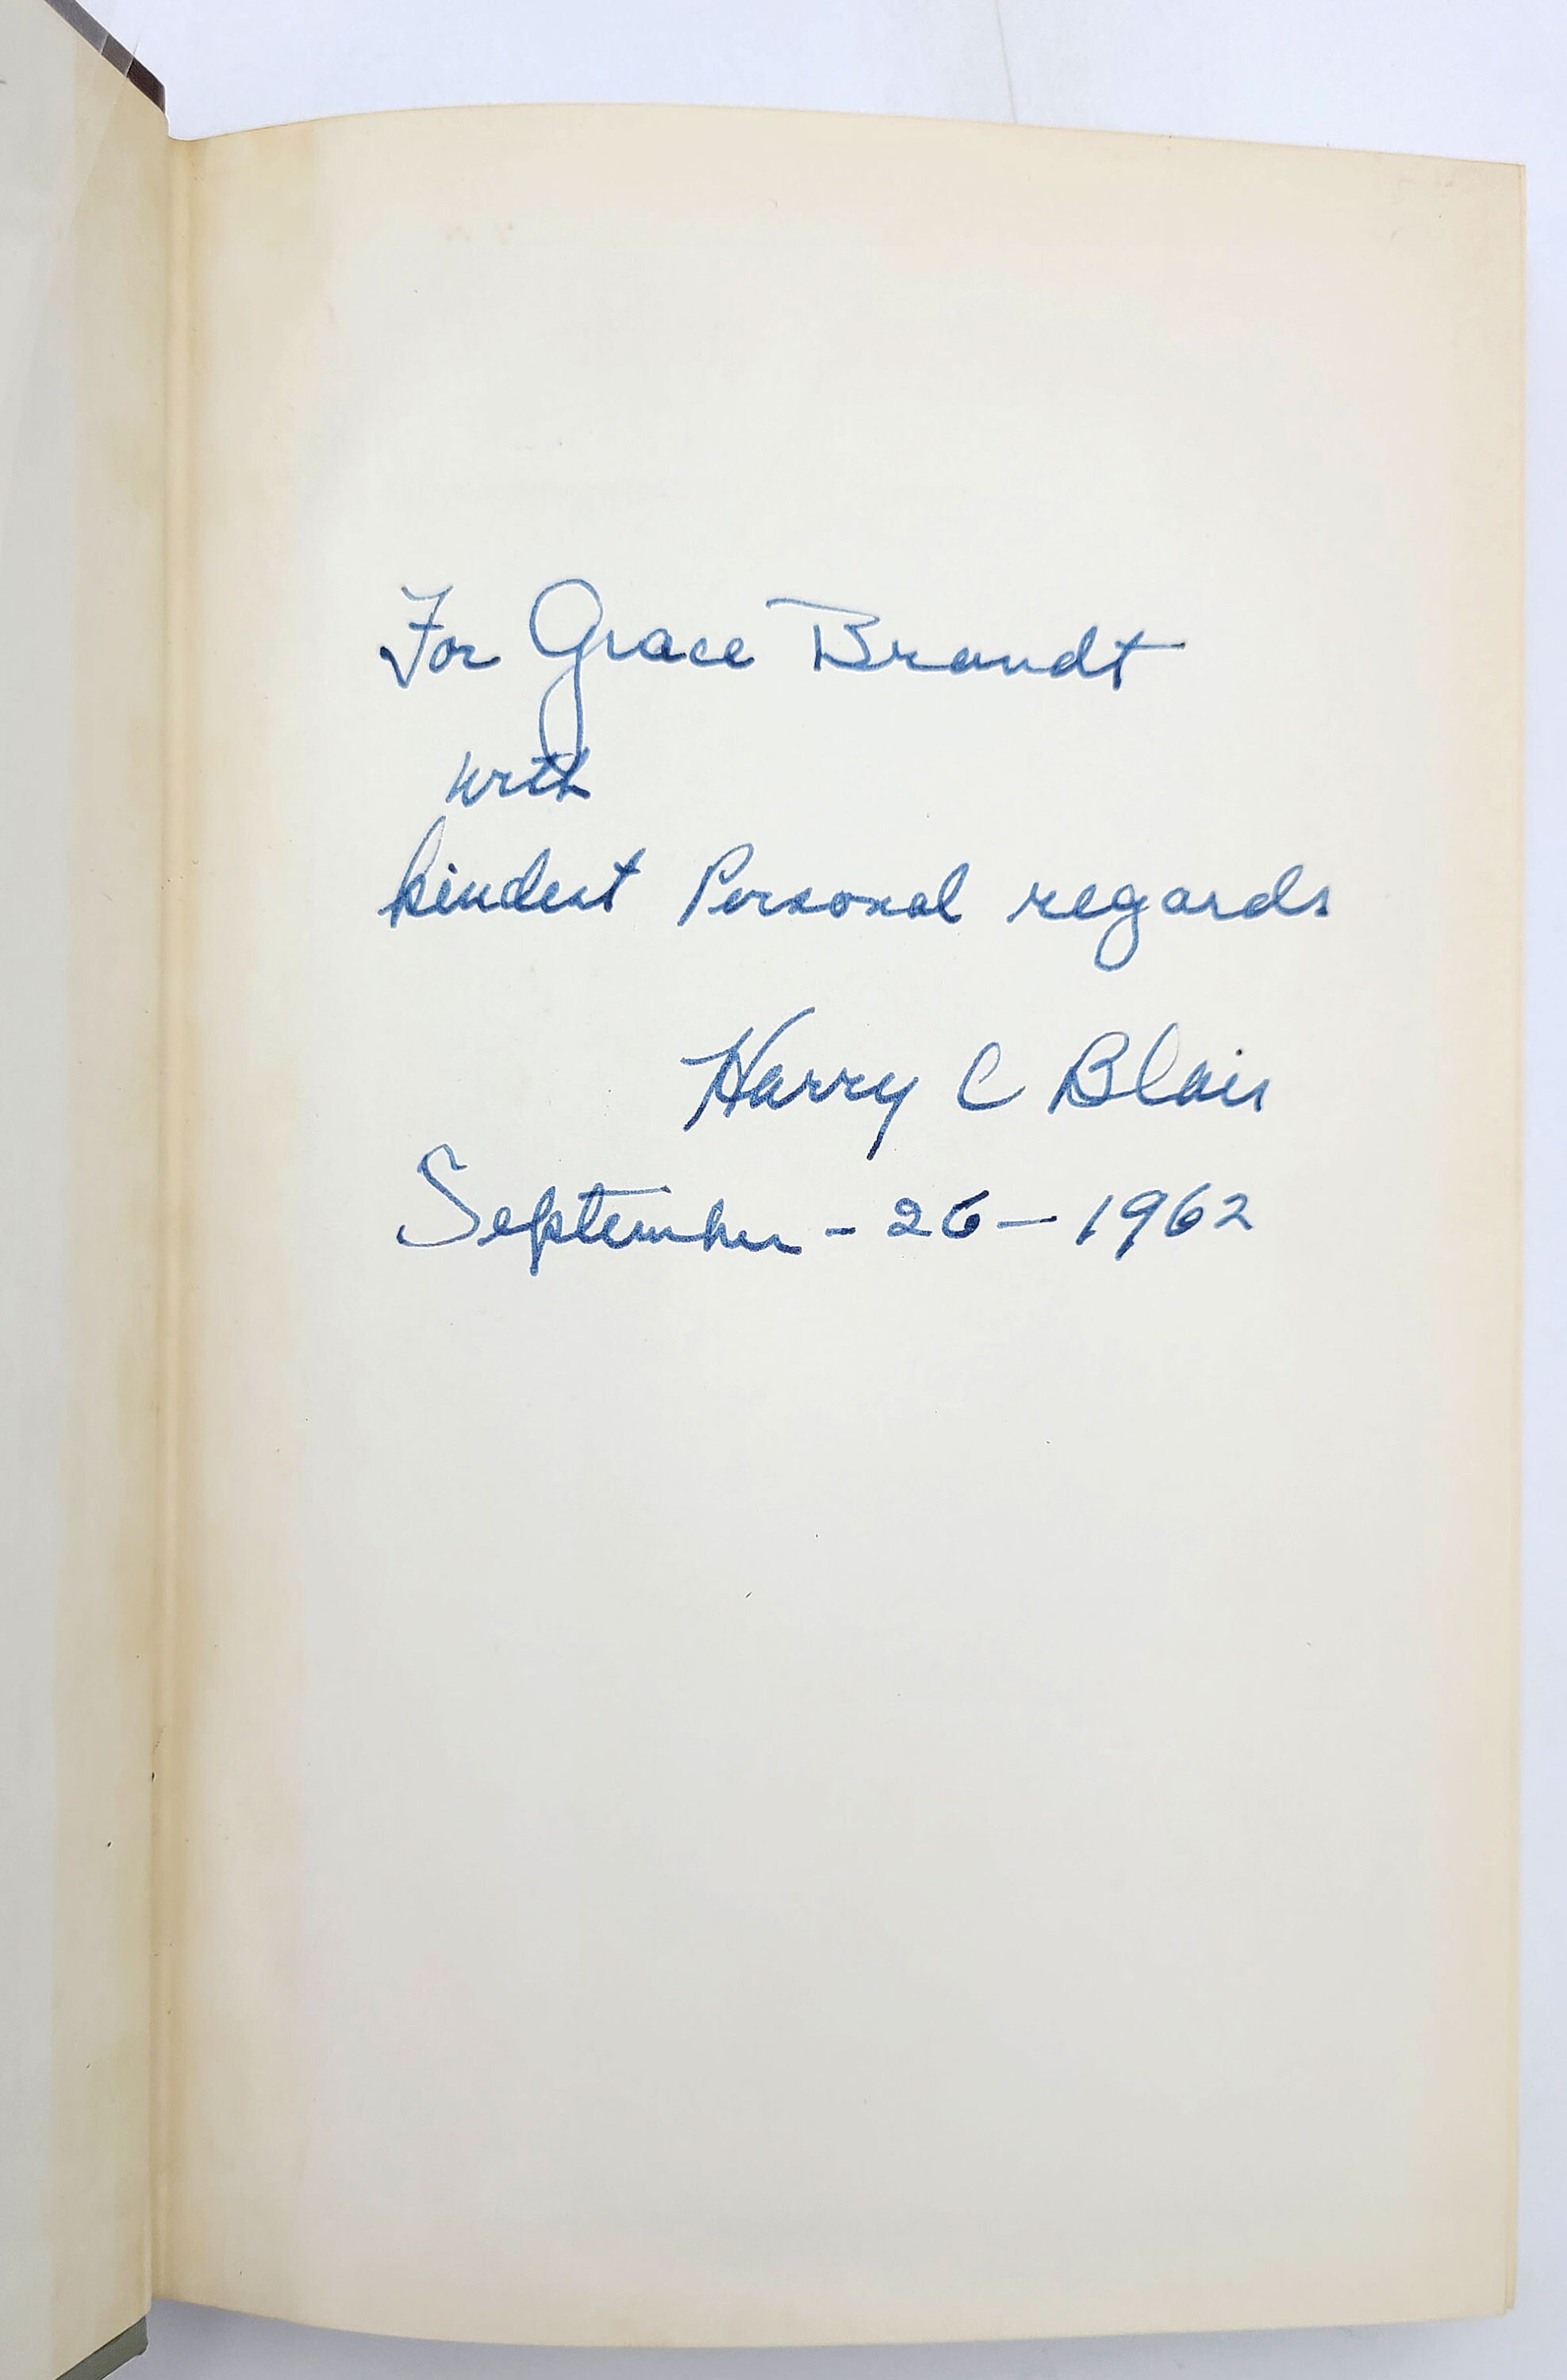 For Grace Brandt
with
kindest Personal regards
Harry C Blair
September - 26 - 1962